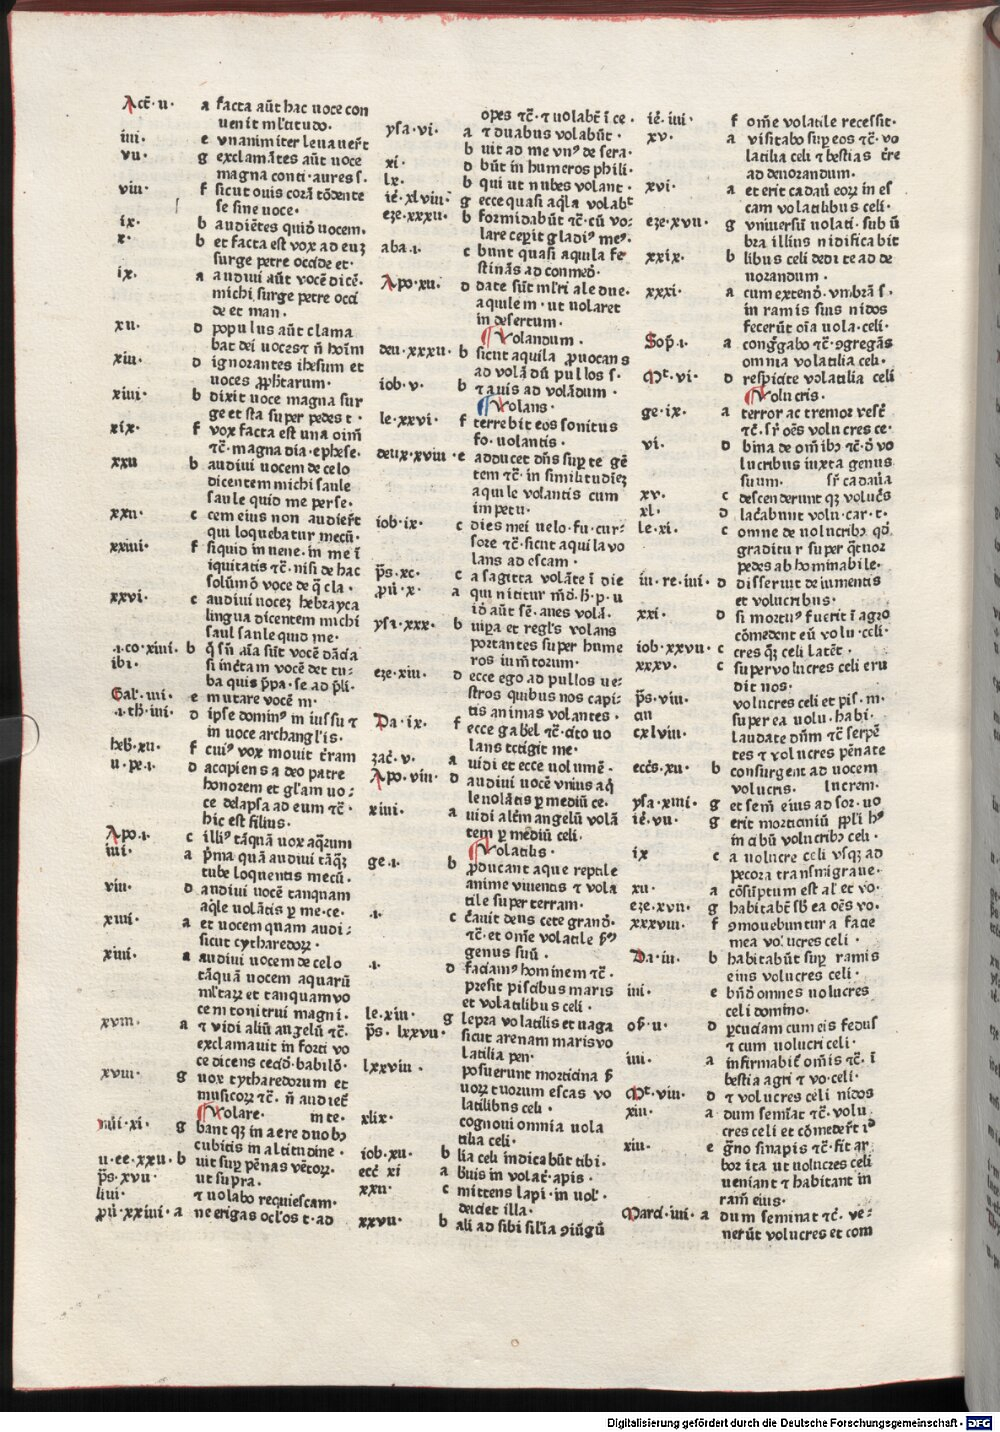 Act̄·u· a facta aūt hac uoce con
uenit mĺtitudo·
iiii· e vnanimiter leuauer̄t
vii· g exclamātes aūt uoce
magna conti·aures s·
viii· f sicut ouis corā tōdente
se sine uoce·
ix· b audiētes quidē uocem·
x· b et facta est vox ad euꝫ
surge petre occide et·
ix· a audiui aūt vocē dicē·
michi surge petre occi
de et man·
xii· d populus aūt clama
bat dei uoces ⁊ n̄ hoīm
xiii· d ignorantes ihesum et
uoces ꝓphetarum·
xiiii· b dixit uoce magna sur
ge et sta super pedes t·
xix· f vox facta est una oīm
⁊c̄· magna dia·ephese·
xxii b audiui uocem de celo
dicentem michi saule
saule quid me perse·
xxii· c cem eius non audier̄t
qui loquebatur mecū·
xxiiii· f siquid inuene·in me ī
iquitatis ⁊c̄·nisi de hac
solūmō voce de q̄ cla·
xxvi· c audiui uoceꝫ hebrayca
lingua dicentem michi
saul saule quid me·
·i·co·xiiii· b q̄ sn̄ aīa sūt vocē dācia
ibi· si inctam vocē det tu-
ba quis p̄pa·se ad p̄li·
Gal̄·iiii· e mutare vocē m·
·i·th̄·iiii· d ipse domin⁹ in iussu ⁊
in uoce archangl̄is·
heb̄·xii· f cui⁹ vox mouit t̄ram
ii·pe·i· d accipiens a deo patre
honorem et gl̄am uo:
ce delapsa ad eum ⁊c̄·
hic est filius·
Apo·i· c illi⁹ tāquā uox aq̄rum
iiii· a p̄ma quā audiui tāq̄ꝫ
tube loquentis mecū·
viii· d audiui uocē tanquam
aq̄le uolātis ꝑ me·ce·
xiiii· a et uocem quam audi:
sicut cytharedoꝝ·
xiiii· a audiui uocem de celo
tāquā uocem aquarū
ml̄taꝝ et tanquam vo
cem tonitrui magni·
xviii· a ⁊ vidi aliū angelū ⁊c̄·
exclamauit in forti vo
ce dicens cecid̄·babilō·
xviii· g uox cytharedorum et
musicoꝝ ⁊c̄· n̄ audiet̄
¶Volare· in te·
nūi·xi· g bant qꝫ in aere duobꝫ
cubitis in altitudine·
ii·ee·xxii· b uit suꝑ pēnas vētoꝝ·
p̄s·xvii· ut supra·
liiii· ⁊ uolabo requiescam·
ꝓū·xxiiii· a ne erigas ocl̄os t·ad
opes ⁊c̄·⁊ uolabt̄ ī ce·
ysa·vi· a ⁊ duabus volabūt·
b uit ad me vn⁹ de sera·
xi· d būt in humeros phili·
lx· b qui ut nubes volant·
iē·xlviii· g ecce quasi aq̄la volabt̄
eze·xxxii· b formidabūt ⁊c̄·cū vo:
lare cepit gladi⁹ me⁹·
aba·i· c bunt quasi aquila fe
stinās ad conmed̄·
Apo·xii· d date sūt ml̄ri ale due·
aquile m·ut uolaret
in desertum·
¶Volandum·
deu·xxxii· b sicut aquila ꝓuocans
ad volādū pullos s·
iob·v· b ⁊ auis ad volādum·
¶Volans·
le·xxvi· f terrebit eos sonitus
fo·uolantis·
deux·xviii· e adducet dn̄s suꝑ te gē
tem ⁊c̄·in similitudieꝫ
aquile volantis cum
impetu·
iob·ix· c dies mei uelo·fu·cur:
sore ⁊c̄·sicut aquila vo
lans ad escam·
p̄s·xc· c a sagitta volāte ī die
ꝓū·x· a qui nititur mēd̄·h̄·p·u
id̄ aūt sē·aues volā·
ysa·xxx· b uiꝑa et regl̄s volans
portantes super hume
ros iumētorum·
eze·xiii· d ecce ego ad pullos ue:
stros quibus nos capi:
tis animas volantes·
Da·ix· f ecce gabel ⁊c̄·cito uo
lans tetigit me·
zac̄·v· a uidi et ecce uolumē·
Apo·viii· d audiui uocē vnius aq̄
le uolātis ꝑ mediū ce·
xiiii· a uidi altēm angelū volā
tem ꝑ mediū celi·
¶Volatilis·
ge·i· b ꝓducant aque reptile
anime viuentis ⁊ vola
tile super terram·
·i· c c̄auit deus cete grand̄·
⁊c̄·et om̄e volatile s̄m
genus suū·
·i· d faciam⁹ hominem ⁊c̄·
presit piscibus maris
et volatilibus celi·
le·xiii· g lepra volatilis et uaga
p̄s·lxxvii· sicut arenam maris vo
latilia pen·
lxxviii· posuerunt morticina s̄
uoꝝ tuorum escas vo
latilibus celi·
xlix· cognoui omnia uola
tilia celi·
iob·xii· b lia celi indicabūt tibi·
ecc̄ xi a breuis in volat̄·apis·
xxii· c mittens lapi·in uol̄·
deiciet illa·
xxvii· b ali ad sibi sil̄ia ꝯiūgū
iē·iiii· f om̄e volatile recessit·
xv· a visitabo suꝑ eos ⁊c̄·vo
latilia celi ⁊ bestias t̄re
ad deuorandum·
xvi· a et erit cadaū eoꝝ in es
cam volatilibus celi·
eze·xvii· g vniuersū uolati·sub ū
bra illius nidificabit
xxix· b libus celi dedi te ad de
uorandum·
xxxi· a cum extend̄·vmbrā s·
in ramis suis nidos
fecerūt oīa uola·celi·
Sop̄·i· a cong̅gabo ⁊c̄·ꝯgregās
omnia volatilia celi·
Mt̄·vi· d respicite volatilia celi
¶Volucris·
ge·ix· a terror ac tremor vest̄
⁊c̄·sr̄ oēs volucres ce·
vi· d bina de om̄ibꝫ ⁊c̄·d̄ vo
lucribus iuxta genus
suum· sr̄ cadaūa
xv· c descenderunt qꝫ voluc̄s
xl· d lac̄abunt volu·car·t·
le·xi· c omne de uolucribꝫ qd̄
graditur super q̄tuor
pedes abhominabile·
iii·re·iiii· d disseruit de iumentis
et volucribus·
xxi· d si mortu⁹ fuerit ī agro
cōmedent eū volu·celi·
iob·xxvii· c cres q̄ꝫ celi latēt·
xxxv· c super volucres celi eru
dit nos·
p̄s·viii· volucres celi et pis·m·
ciii super ea uolu·habi·
cxlviii· laudate dn̄m ⁊c̄ serpē
tes ⁊ volucres pēnate
ecc̄s·xii· b consurgent ad uocem
volucris· lucrem·
ysa·xiiii· g et sem̄ eius ad sor·uo
iē·vii· g erit morticiniū pp̄li h⁹
in cibū volucribꝫ celi·
ix c a uolucre celi vsqꝫ ad
pecora transmigraue·
xii· a cōsūptum est al̄ et vo·
eze·xvii· g habitabt̄ sb̄ ea oēs vo·
xxxviii· f ꝯmouebuntur a facie
mea volucres celi·
Da·iii· b habitabūt suꝑ ramis
eius volucres celi·
iiii· e bn̄d omnes uolucres
celi domino·
os̄·ii· d ꝑcutiam cum eis fedus
⁊ cum uolucri celi·
iiii· a infirmabit̄ om̄is ⁊c̄·ī
bestia agri ⁊ vo·celi·
Mt̄·viii· d ⁊ volucres celi nidos
xiii· a dum semīat ⁊c̄·volu
cres celi et cōmeder̄t id̄
xiii· e g̅no sinapis ⁊c̄·fit ar
bor ita ut uolucres celi
ueniant ⁊ habitant in
ram̄ eius·
Marci·iiii· a dum seminat ⁊c̄·ve:
nerūt volucres et com
Digitalisierung gefördert durch die Deutsche Forschungsgemeinschaft - DFG